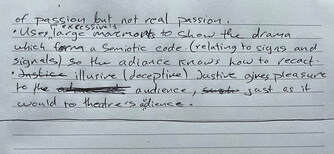 of passion but not real passion.
excessively
• Uses large movements to show the drama
which form a Semiotic code (relating to signs and
signals) so the adiance knows how to react.
• Justice illusive (deceptive) Justive gives pleasure
to the audience, such just as it
would to theatre's adience.